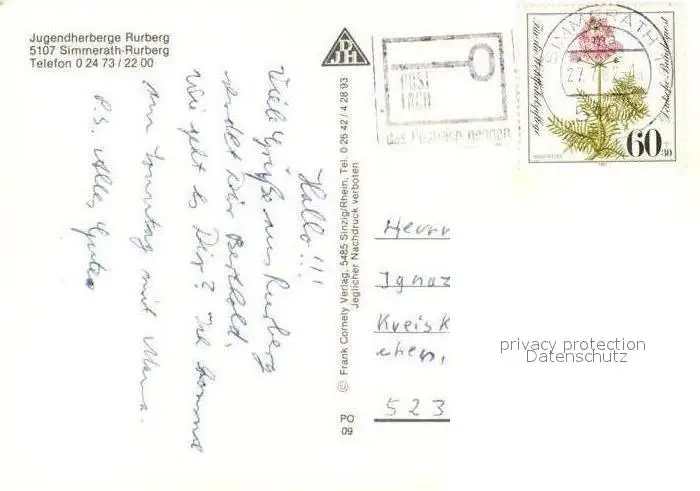 Jugendherberge Rurberg
5107 Simmerath-Rurberg
Telefon 0 24 73 / 22 00
Hallo!!!
Viele Grüße aus Rurberg
sendet Dir Berthold.
Wie geht es Dir? Ich komme
am Sonntag mit Mama.
P.S. Alles Gute
© Frank Cornely Verlag, 5485 Sinzig/Rhein, Tel. 0 26 42 / 4 28 93
Jeglicher Nachdruck verboten
PO
09
JDH
POST
FACH
das Postfach nennen
SIMMERATH 1
60
Herrn
Ignaz
Kreisk
chen,
523
privacy protection
Datenschutz